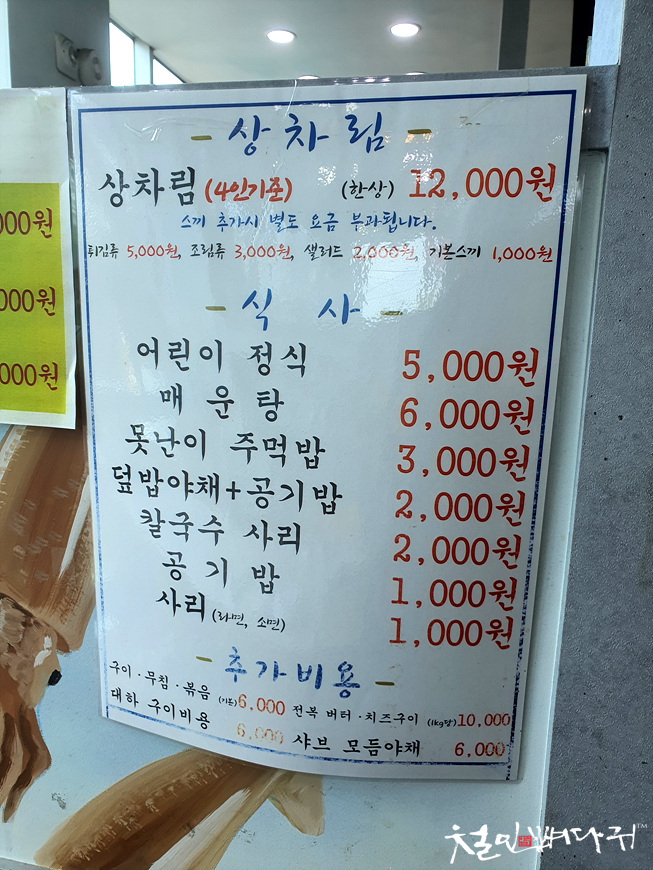 000원
000원
000원
- 상차림 -
상차림 (4인기준) (한상) 12,000원
스끼 추가시 별도 요금 부과됩니다.
튀김류 5,000원, 조림류 3,000원, 샐러드 2,000원, 기본스끼 1,000원
- 식 사 -
어린이 정식 5,000원
매 운 탕 6,000원
못난이 주먹밥 3,000원
덮밥야채+공기밥 2,000원
칼국수 사리 2,000원
공 기 밥 1,000원
사리(라면, 소면) 1,000원
- 추가비용 -
구이·무침·볶음 (기본) 6,000 전복 버터·치즈구이 (1kg당) 10,000
대하 구이비용 6,000 샤브 모듬야채 6,000
철민뼈다귀™